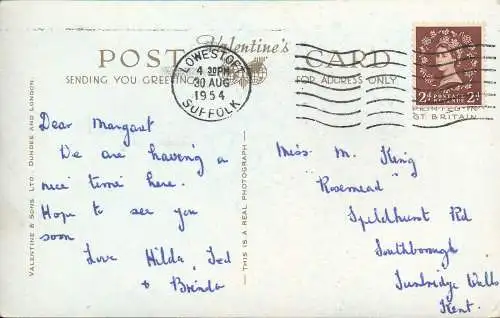 Valentine's
POST CARD
SENDING YOU GREETING
FOR ADDRESS ONLY
LOWESTOFT
4 30PM
30 AUG
1954
SUFFOLK
2d POSTAGE 2d
PRINTED IN
GT BRITAIN
VALENTINE & SONS LTD., DUNDEE AND LONDON.
THIS IS A REAL PHOTOGRAPH
Dear Margaret
We are having a
nice time here.
Hope to see you
soon
Love Hilda, Ted
& Brenda
Miss M. King
"Rosemead"
Speldhurst Rd
Southborough
Tunbridge Wells
Kent.